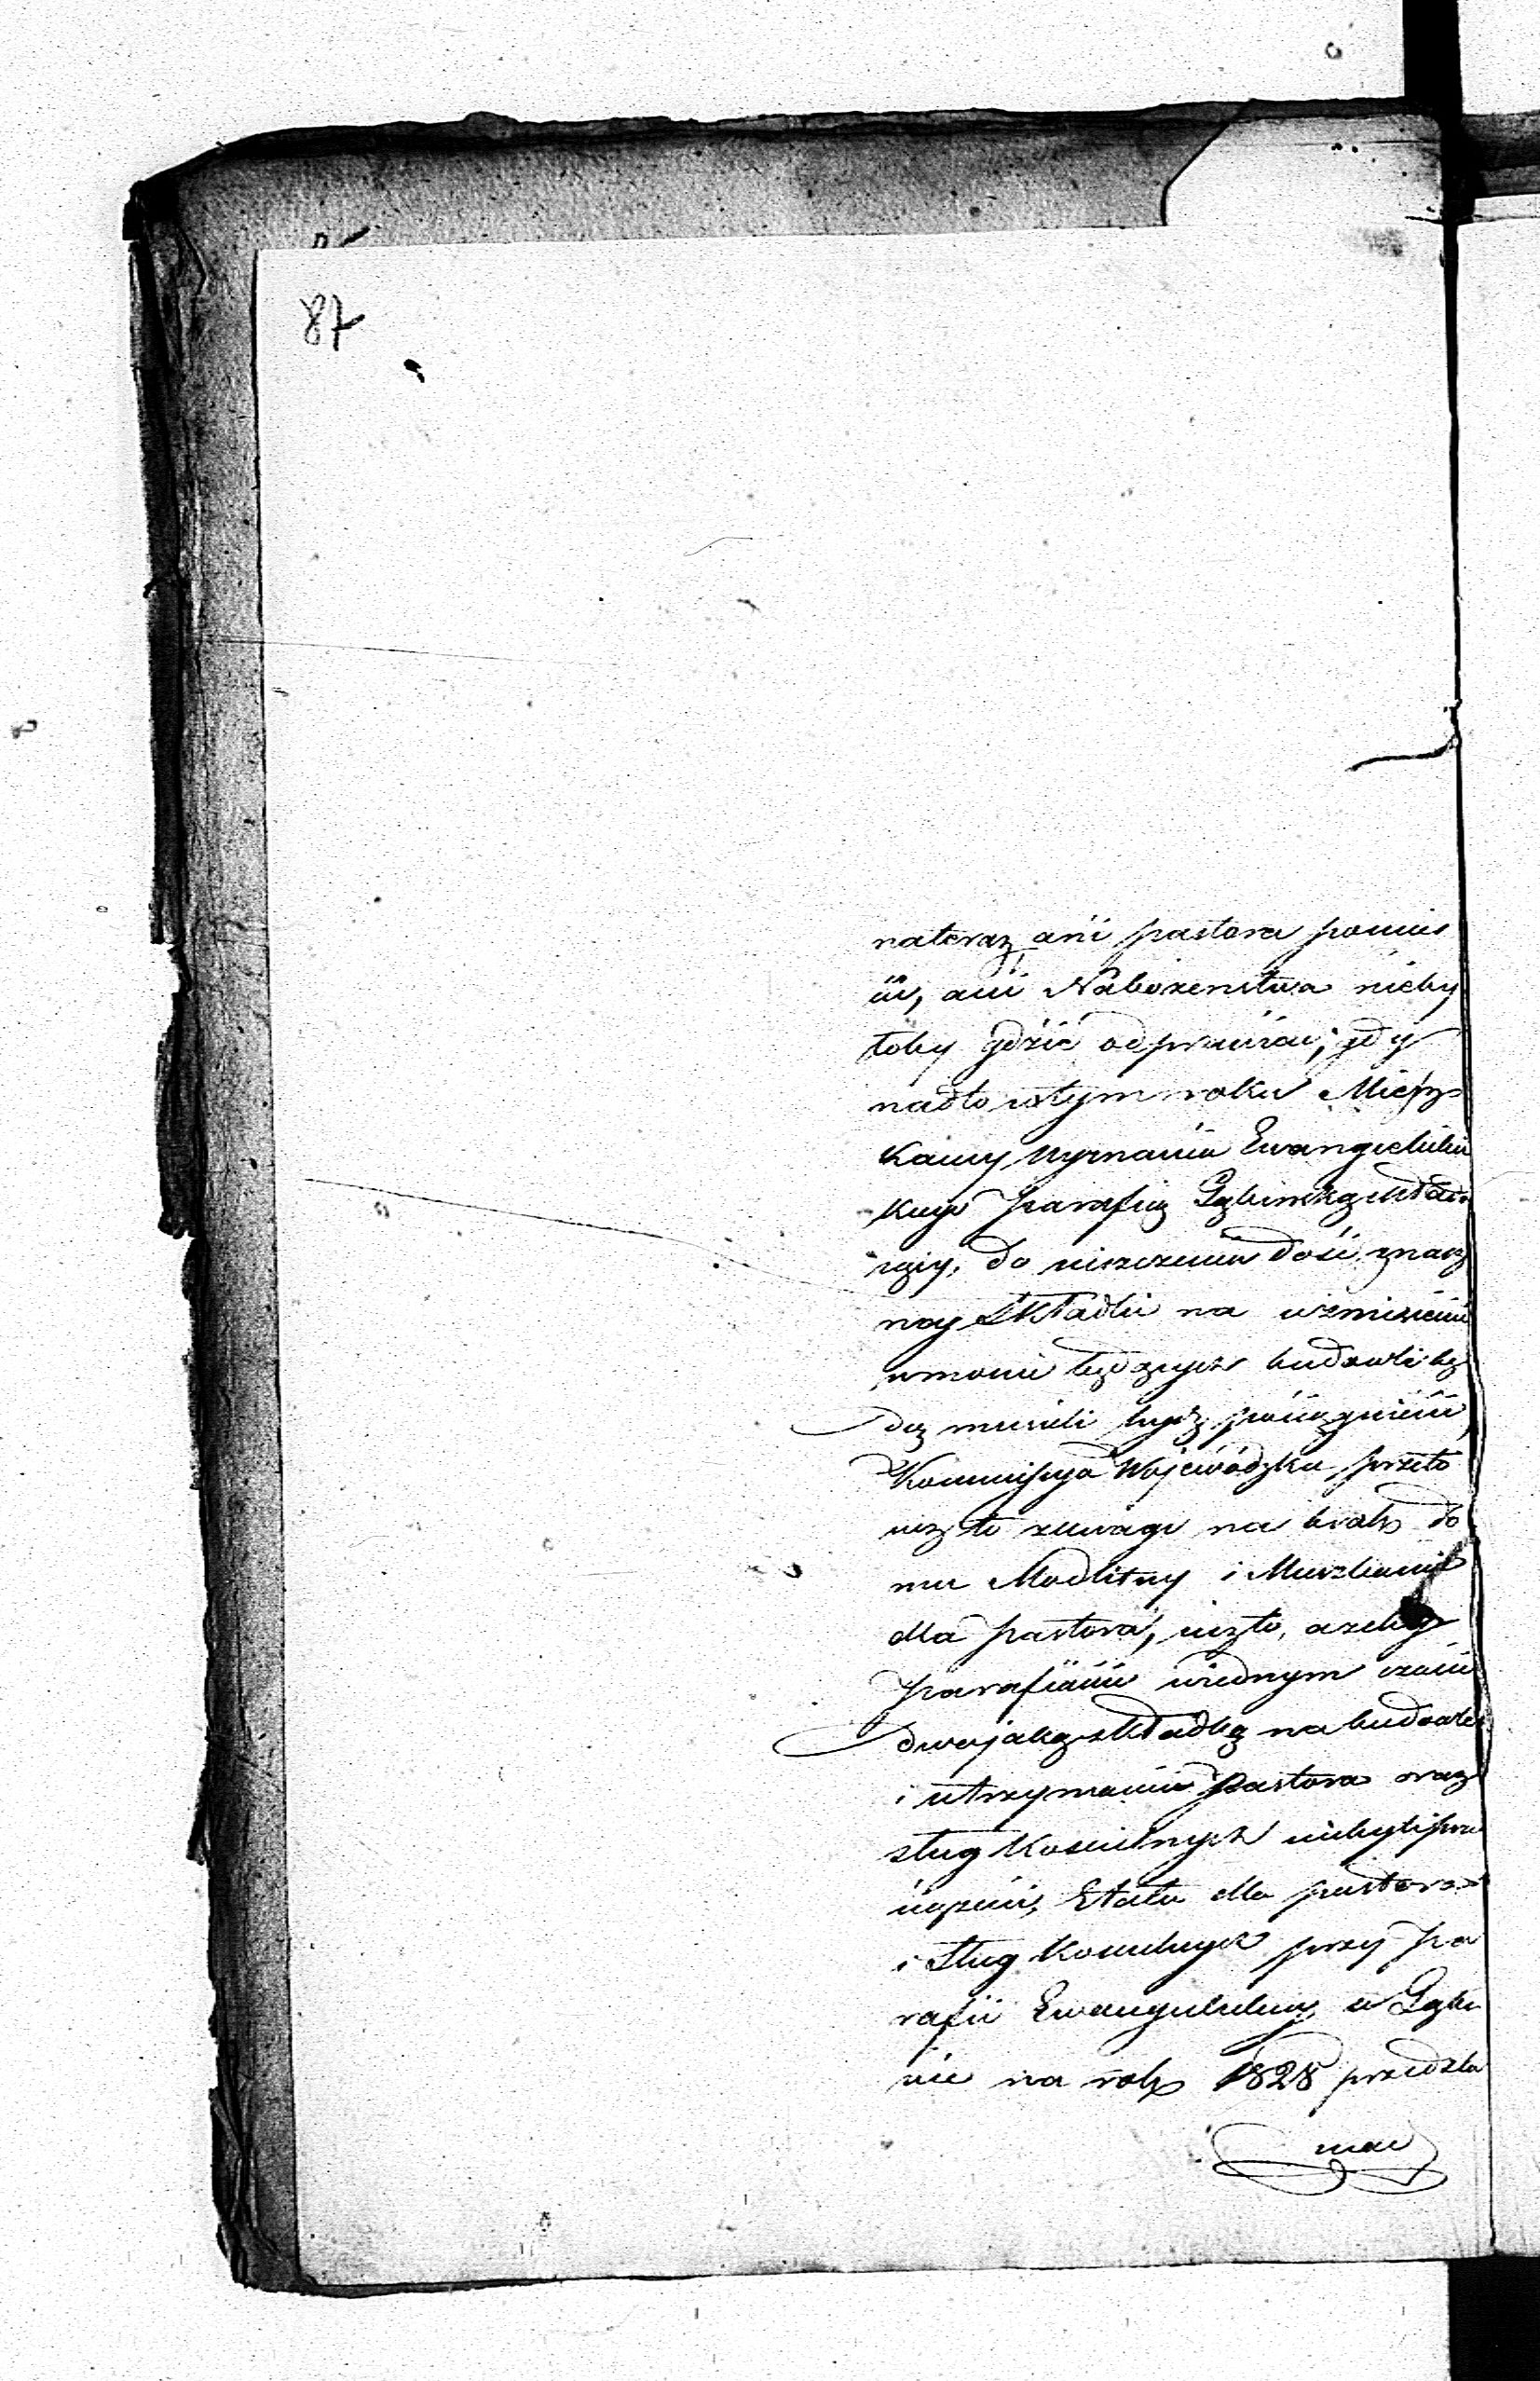 87
nateraz ani pastora pomieś
cić, ani Nabożenstwa nieby
łoby gdzie odprawiać; gdy
nadto wtym roku Miesz
kańcy wyznania Ewangelickie
kugo Parafią Gąbińską składa
iący, do niszczenia dość znacz
ney składki na wzniesienie
wmowie będących budowli bę
dą musieli bydź pociągnieni,
Kommissya Wojewódzka przeto
iuż to zuwagi na brak do
mu Modlitwy i Mieszkania
dla pastora, iużto, ażeby
Parafianie wiednym czasie
dwojaką składką na budowle
i utrzymanie Pastora oraz
sług Kościelnych niebyli prze
ciążeni, Etatu dla pastora
i Sług Kościelnych przy Pa
rafii Ewangelickiey w Gąbi
nie na rok 1828 przedsta
wiać